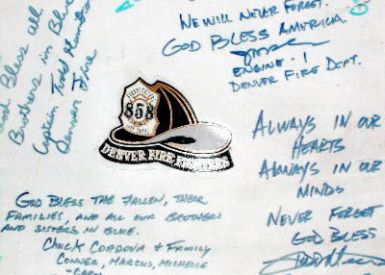 We will never forget.
God Bless America.
Engine - 1
Denver Fire Dept.
God Bless all
Brothers in Blue
Captain Todd
Denver Fire
858
DENVER FIRE FIGHTERS
Always in our
hearts
Always in our
minds
Never Forget
God Bless
God bless the fallen, their
families, and all our brothers
and sisters in blue.
Chuck Cordova & Family
Conner, Marcus, Michelle